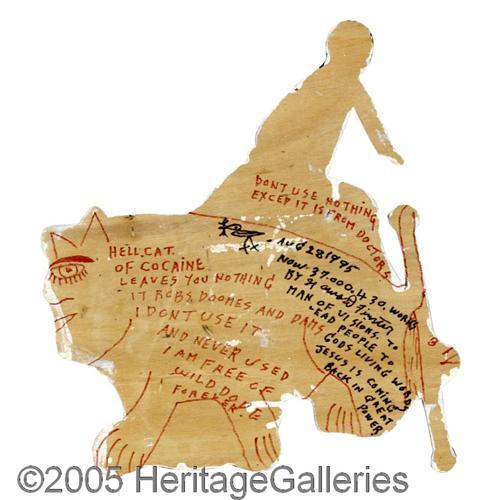 DONT USE NOTHING
EXCEP IT IS FROM DOCTORS
HELL.CAT.
OF COCAINE
LEAVES YOU NOTHING
IT ROBS, DOOMES AND DAMS
I DONT USE IT
AND NEVER USED
I AM FREE OF
WILD DOPE
FOREVER.
AUG 28 1995
NOW. 37000.430. WORKS
BY Howard Finster
MAN OF VISIONS. TO
LEAD PEOPLE TO
GODS LIVING WORD
JESUS IS COMING
BACK IN GREAT
POWER
©2005 HeritageGalleries